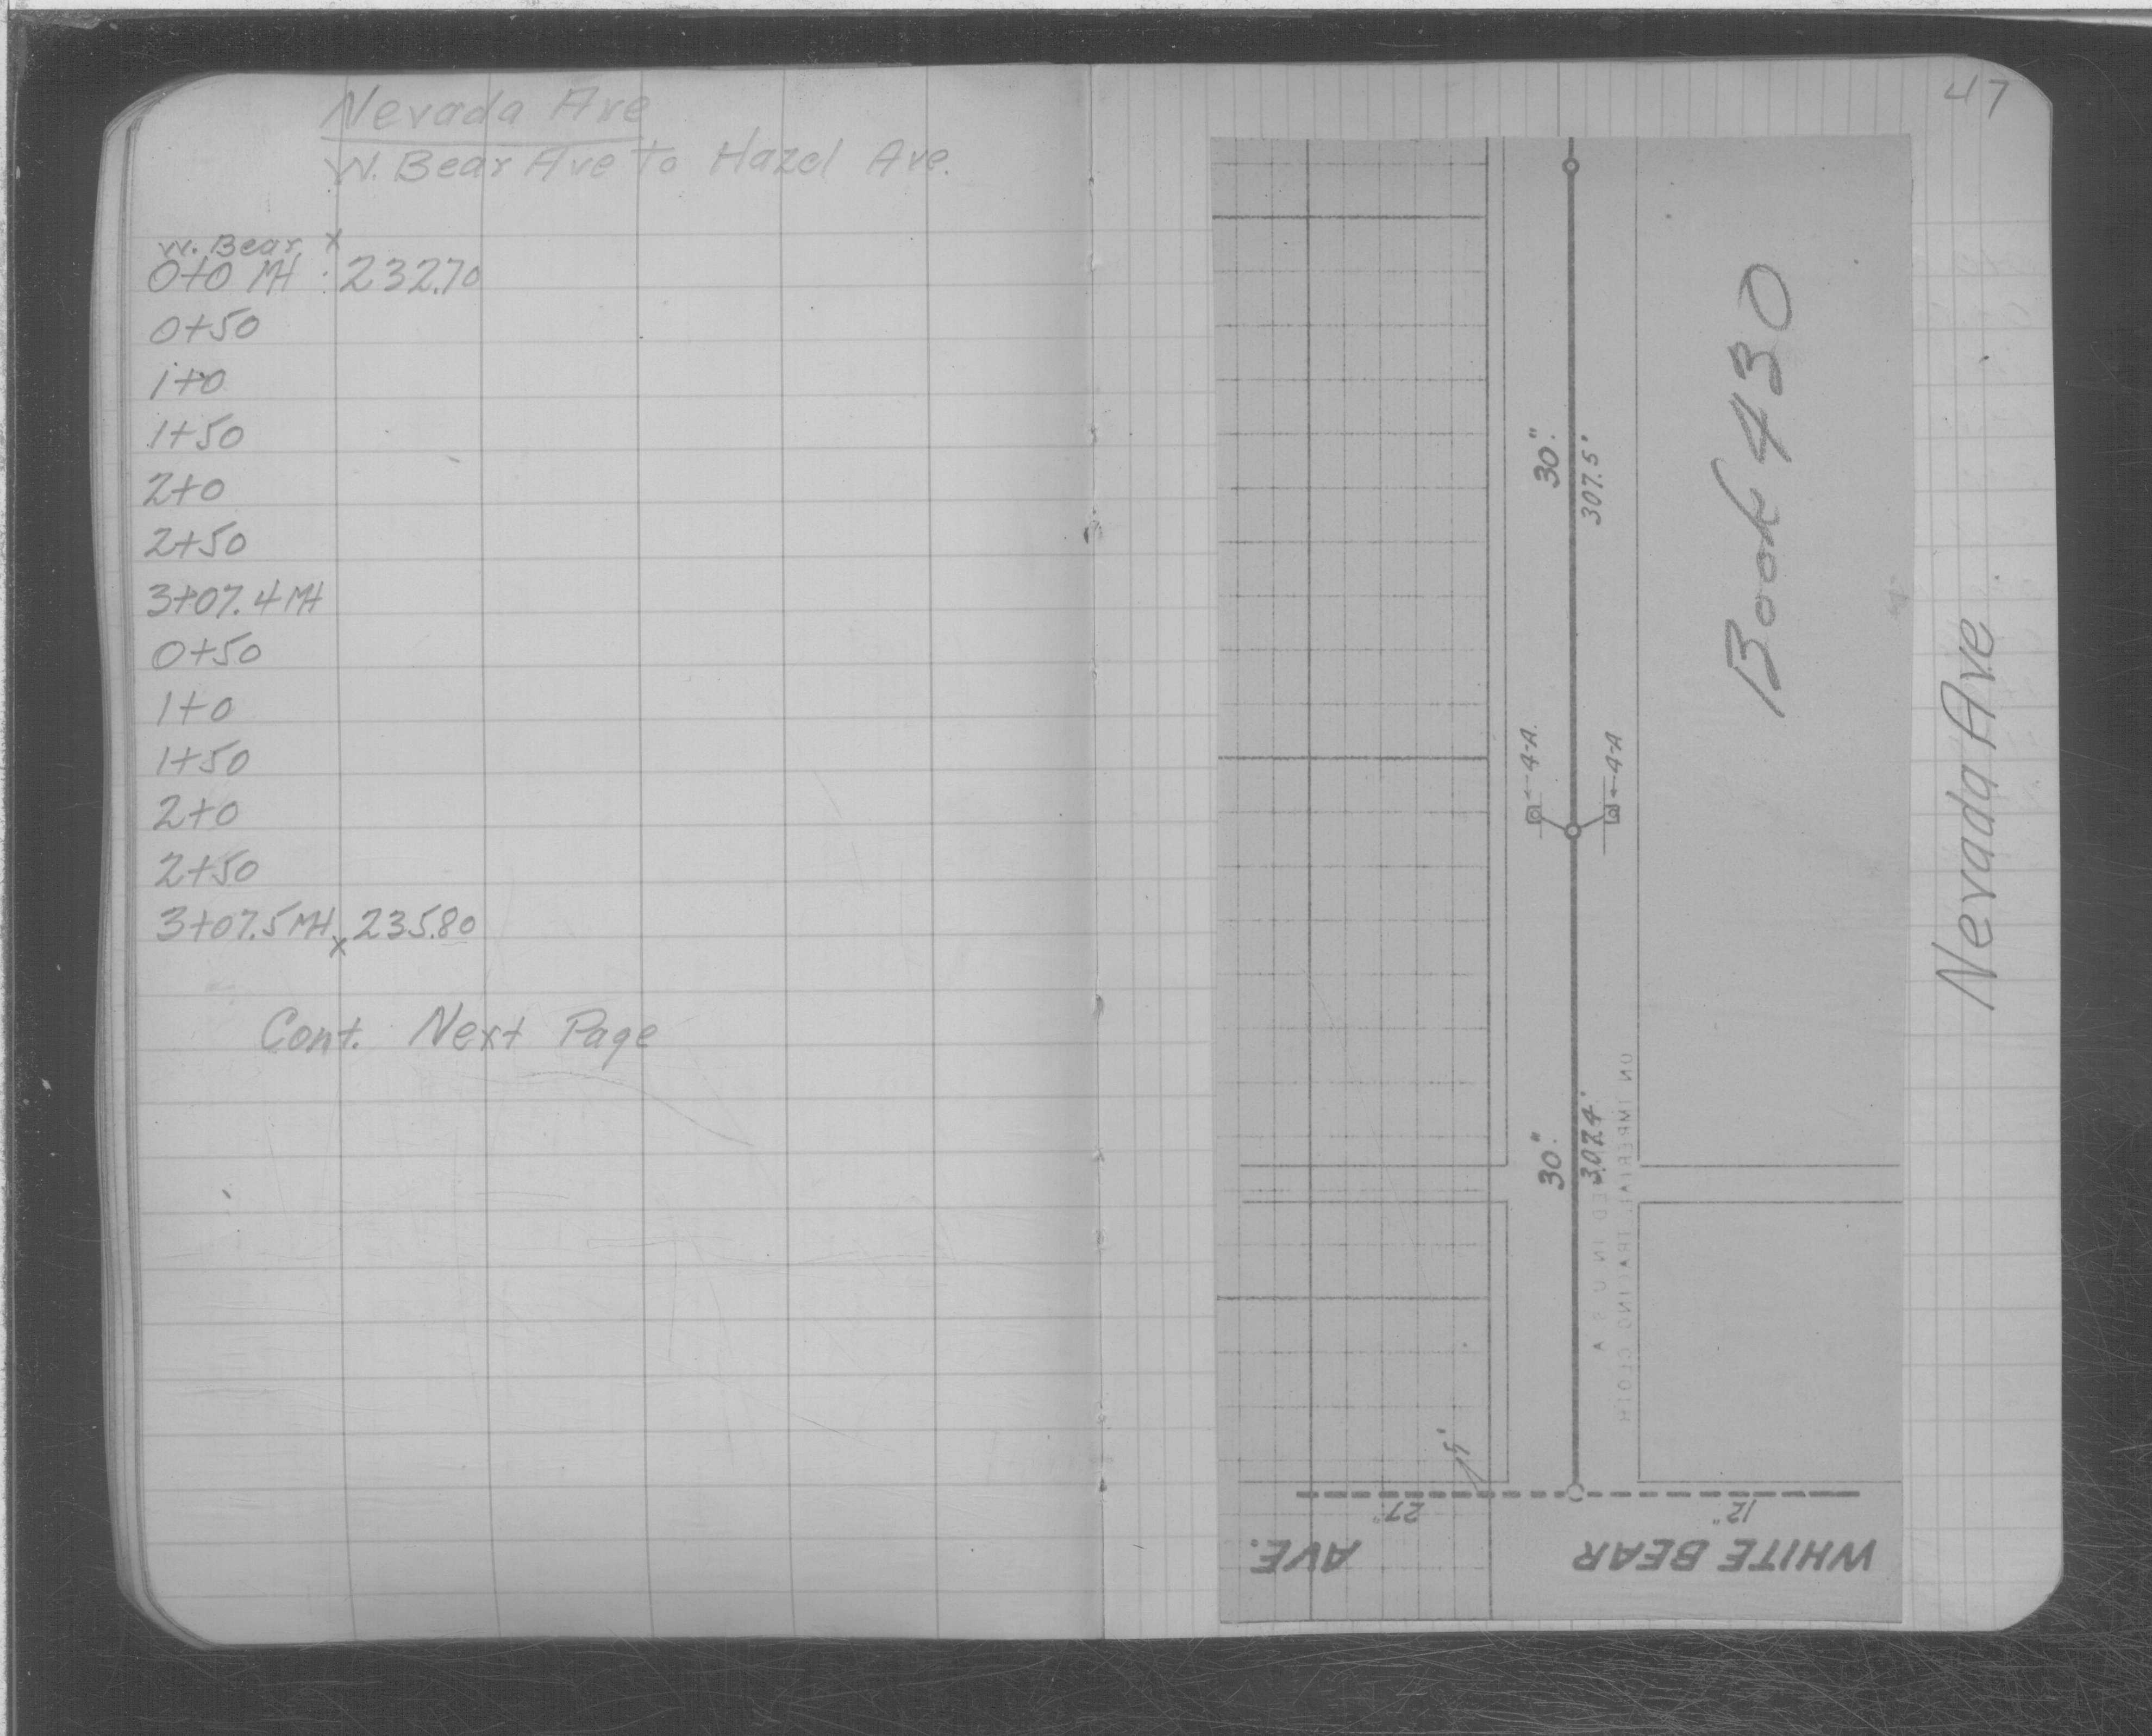 Nevada Ave
W. Bear Ave to Hazel Ave.
W. Bear x
0+0 MH : 232.70
0+50
1+0
1+50
2+0
2+50
3+07.4 MH
0+50
1+0
1+50
2+0
2+50
3+07.5 MH x 235.80
Cont. Next Page
47
Book 430
30".
307.5'
4-A.
4-A
30".
ON IMPERIAL TRACING CLOTH
IN U S A
5'
27"
12"
WHITE BEAR AVE.
Nevada Ave.